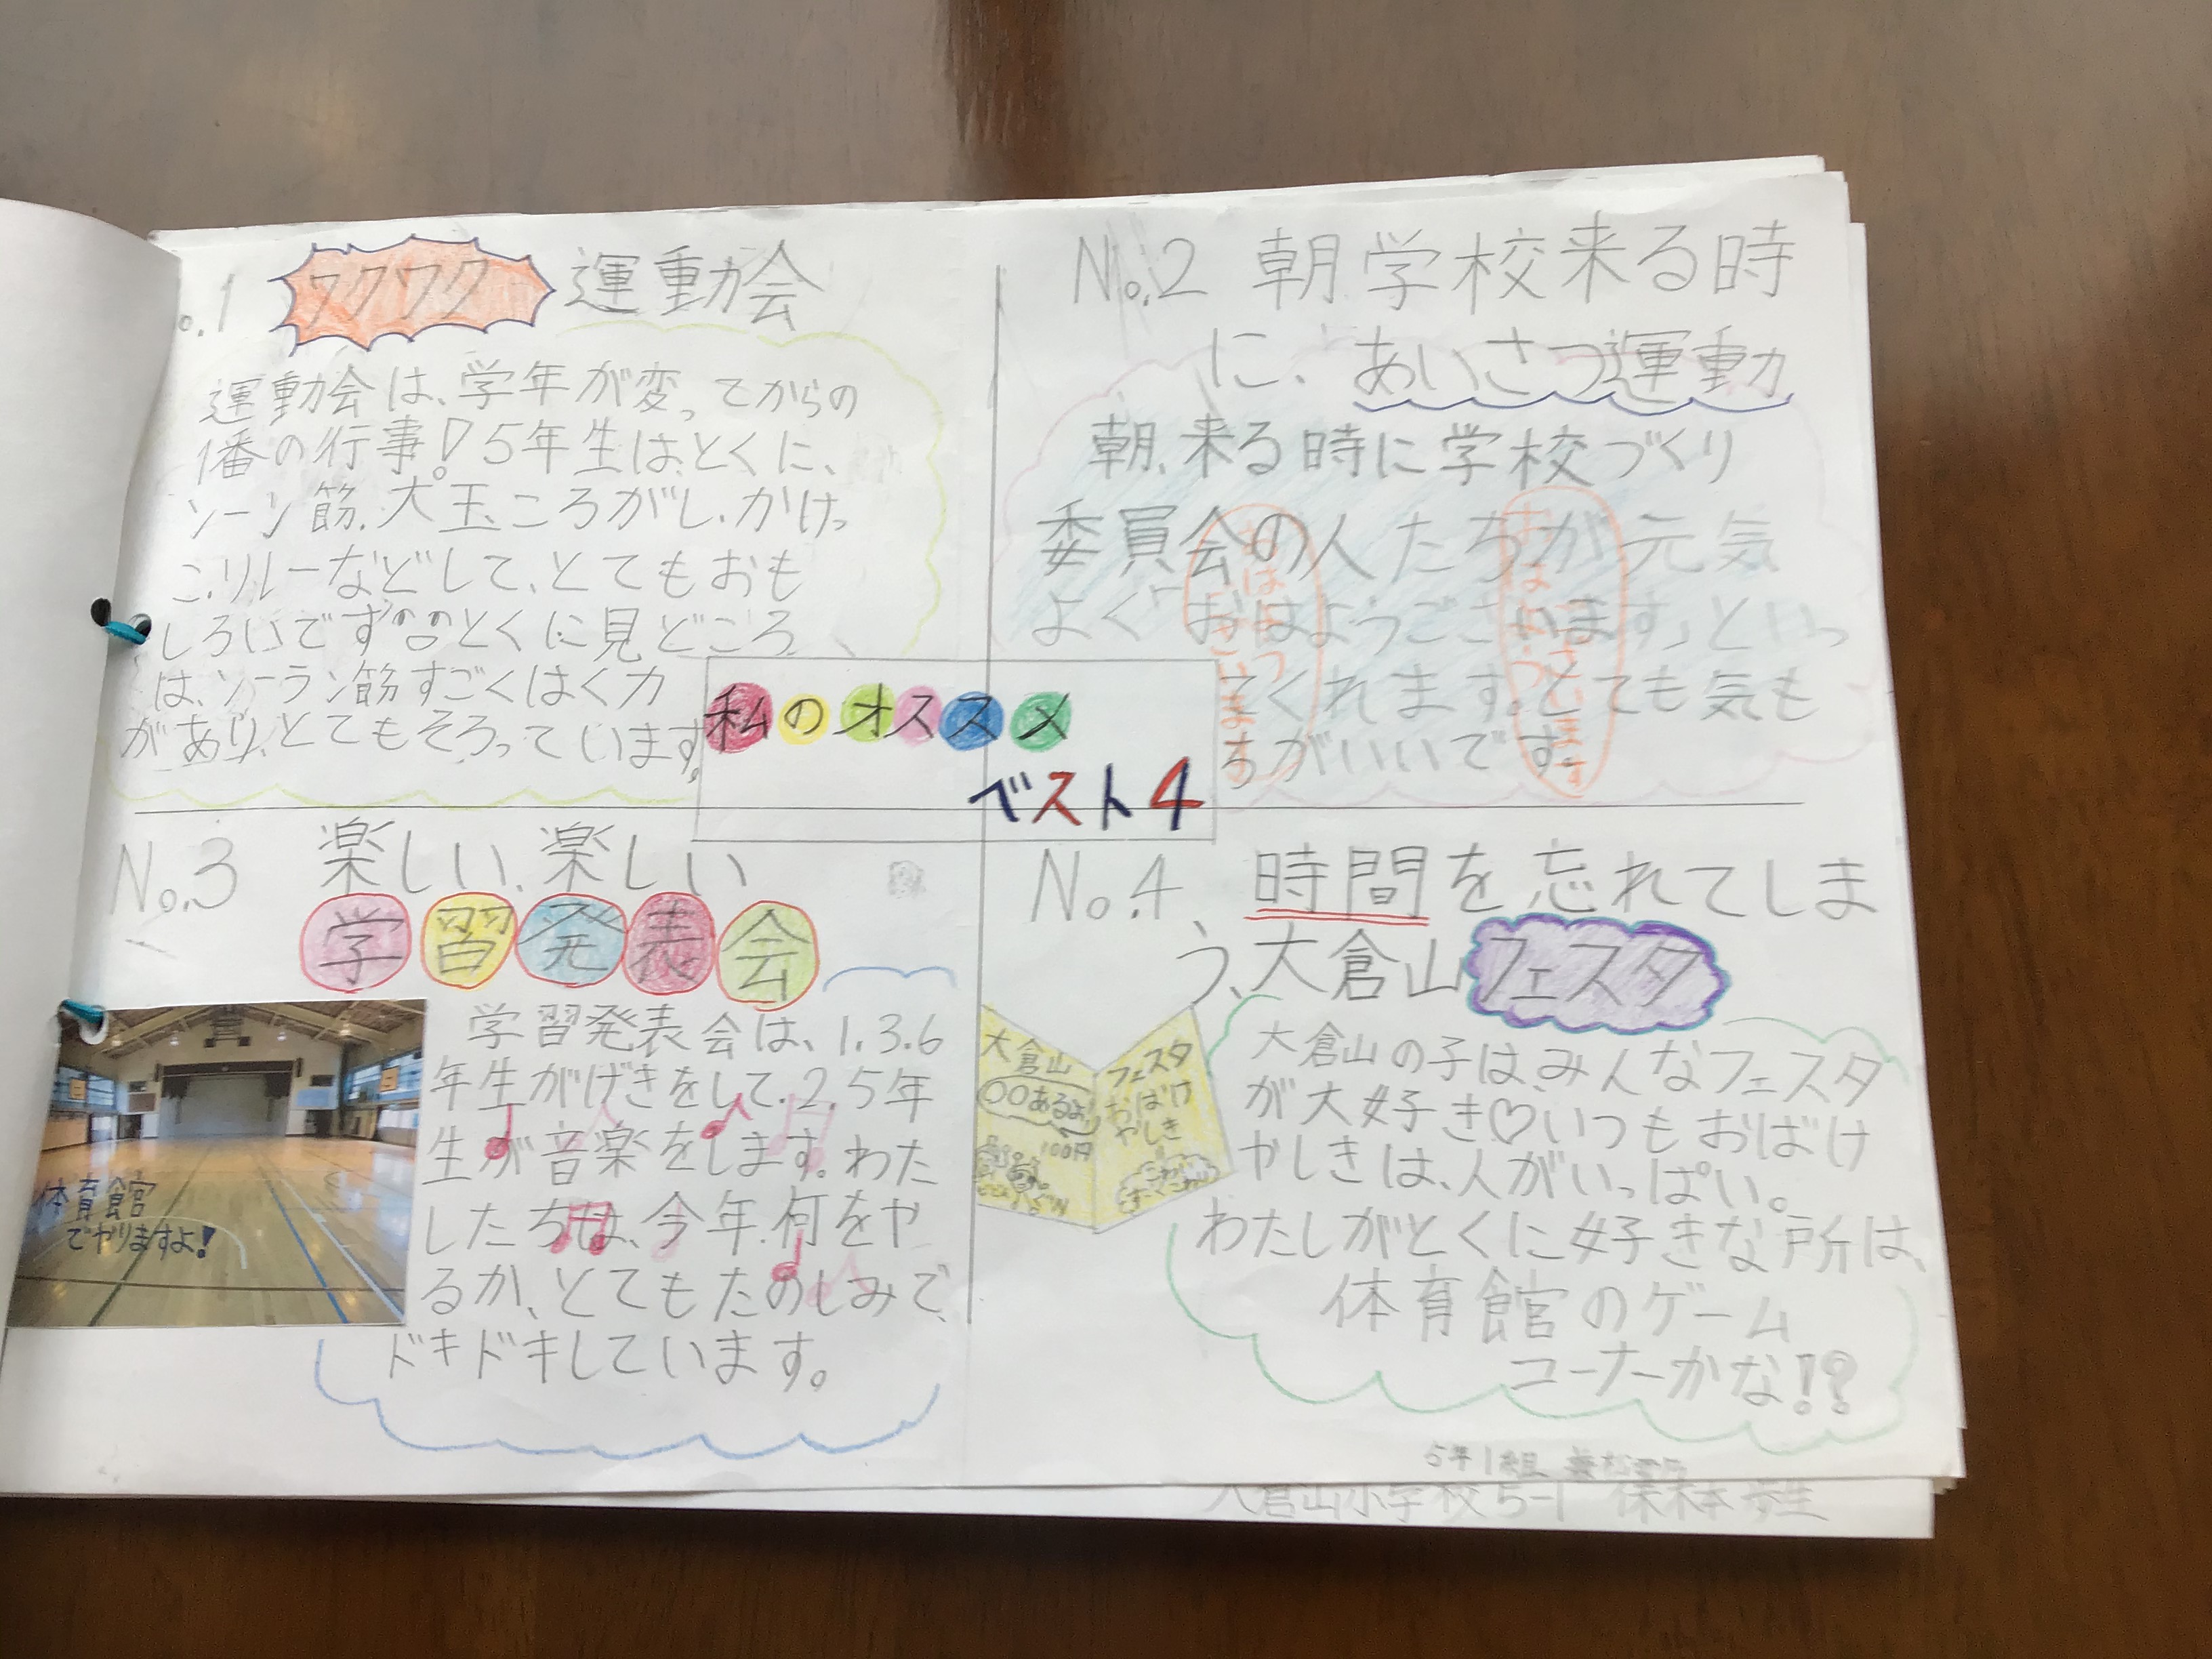 o.1 ワクワク 運動会
運動会は、学年が変ってからの
1番の行事!5年生は、とくに、
ソーン筋、大玉ころがし、かけっ
こ、リレーなどして、とてもおも
しろいです とくに見どころ
は、ソーラン筋すごくはく力
があり、とてもそろっています。
No.2 朝学校来る時
に、あいさつ運動
朝、来る時に学校づくり
委員会の人たちが元気
よく「おはようございます」といっ
てくれます。とても気も
ちがいいです。
おはようございます
おはようございます
私のオススメ
ベスト4
No.3 楽しい、楽しい
学習発表会
学習発表会は、1.3.6
年生がげきをして、2.5年
生が音楽をします。わた
したちは、今年、何をや
るか、とてもたのしみで、
ドキドキしています。
体育館
でやりますよ!
No.4、時間を忘れてしま
う、大倉山フェスタ
大倉山
〇〇あるよ
100円
フェスタ
おばけ
やしき
大倉山の子は、みんなフェスタ
が大好き♡いつもおばけ
やしきは、人がいっぱい。
わたしがとくに好きな所は、
体育館のゲーム
コーナーかな!?
5年1組
大倉山小学校5-1